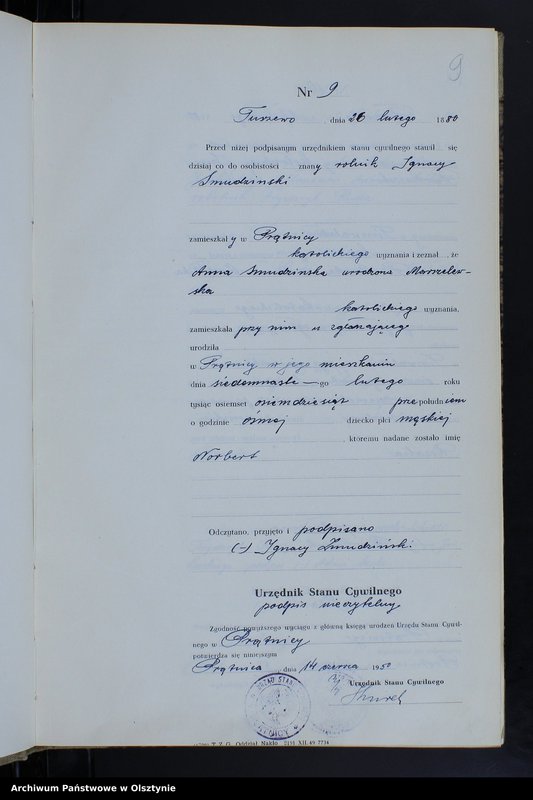 9
Nr 9
Turzewo , dnia 26 lutego 1880
Przed niżej podpisanym urzędnikiem stanu cywilnego stawił się
dzisiaj co do osobistości znany rolnik Ignacy
Smudzinski
zamieszkały w Prątnicy
katolickiego wyznania i zeznał , że
Anna Smudzinska urodzona Marszelew-
ska
katolickiego wyznania,
zamieszkała przy nim u zgłaszającego
urodziła
w Prątnicy w jego mieszkaniu
dnia siedemnaste – go lutego roku
tysiąc osiemset osiemdziesiąt przepołudniem
o godzinie ósmej dziecko płci męskiej
, któremu nadane zostało imię
Norbert
Odczytano, przyjęto i podpisano
(-) Ignacy Zmudziński
Urzędnik Stanu Cywilnego
podpis nieczytelny
Zgodność powyższego wyciągu z główną księgą urodzeń Urzędu Stanu Cywil-
nego w Prątnicy
potwierdza się niniejszym
Prątnica , dnia 14 czerwca 1950
Urzędnik Stanu Cywilnego
T. Z. G. Oddział Nakło 2151 XII.49 7734
Archiwum Państwowe w Olsztynie